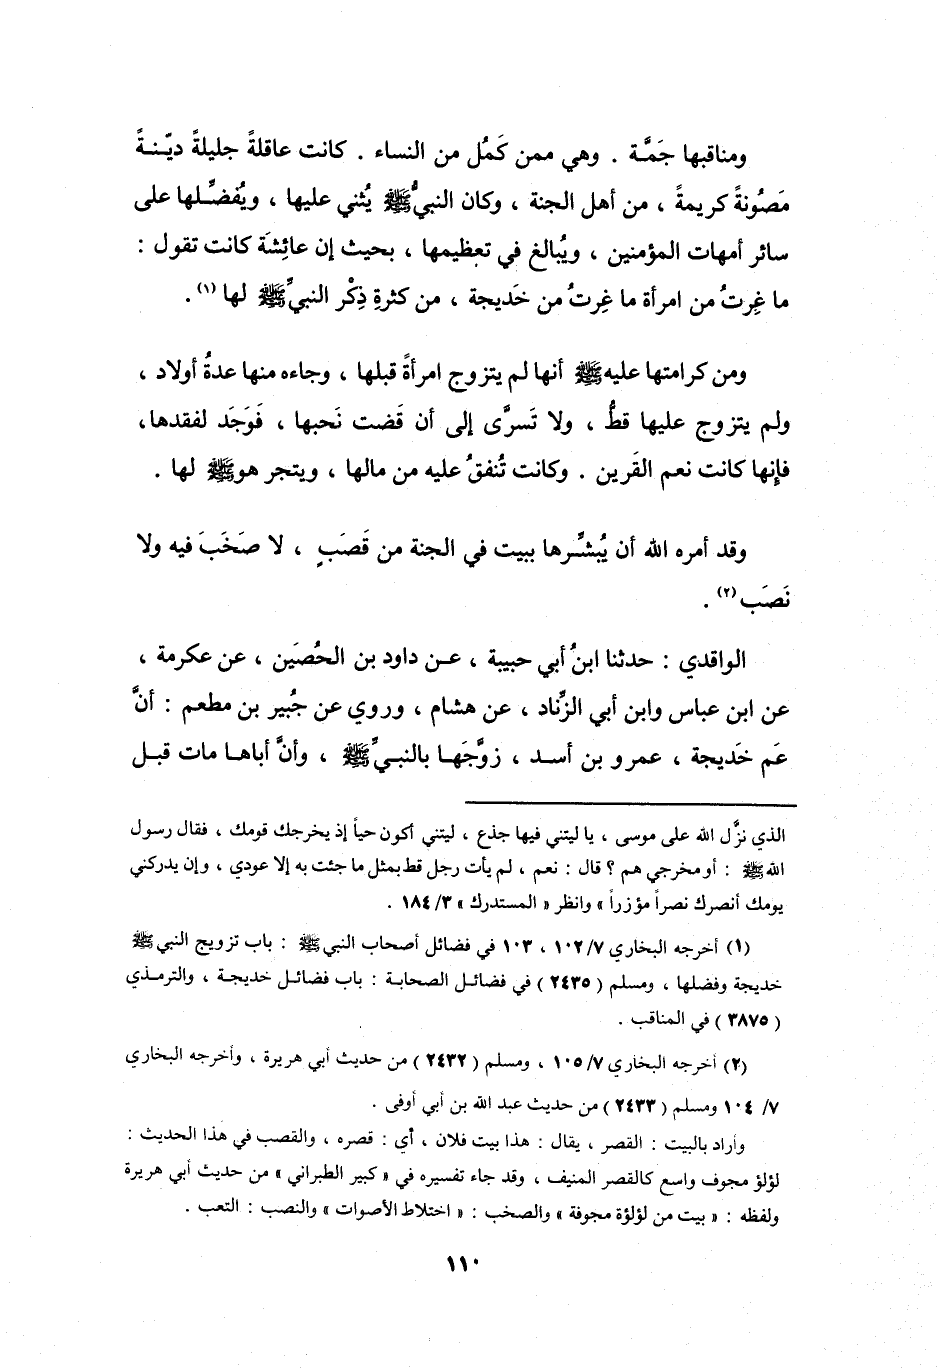 ومناقبها جَمَّة . وهي ممن كَمُل من النساء . كانت عاقلةً جليلةً ديّنةً
مَصُونةً كريمةً ، من أهل الجنة ، وكان النبيُّ ﷺ يُثني عليها ، ويُفضِّلها على
سائر أمهات المؤمنين ، ويُبالغ في تعظيمها ، بحيث إن عائِشَة كانت تقول :
ما غِرتُ من امرأة ما غِرتُ من خَديجة ، من كثرةِ ذِكْر النبيِّ ﷺ لها (١) .
ومن كرامتها عليه ﷺ أنها لم يتزوج امرأةً قبلها ، وجاءه منها عدةُ أولاد ،
ولم يتزوج عليها قطُّ ، ولا تَسرَّى إلى أن قَضت نَحبها ، فَوَجَد لفقدها،
فإنها كانت نعم القَرين . وكانت تُنفقُ عليه من مالها ، ويتجر هو ﷺ لها .
وقد أمره الله أن يُبشِّرها ببيت في الجنة من قَصَبٍ ، لا صَخَبَ فيه ولا
نَصَب (٢) .
الواقدي : حدثنا ابنُ أبي حبيبة ، عن داود بن الحُصَين ، عن عكرمة ،
عن ابن عباس وابن أبي الزِّناد ، عن هشام ، وروي عن جُبير بن مطعم : أنَّ
عَم خَديجة ، عمرو بن أسد ، زوَّجَها بالنبيِّ ﷺ ، وأنَّ أباها مات قبل
الذي نزَّل الله على موسى ، يا ليتني فيها جذع ، ليتني أكون حياً إذ يخرجك قومك ، فقال رسول
الله ﷺ : أو مخرجي هم ؟ قال : نعم ، لم يأت رجل قط بمثل ما جئت به إلا عودي ، وإن يدركني
يومك أنصرك نصراً مؤزراً » وانظر « المستدرك » ٣/ ١٨٤ .
(١) أخرجه البخاري ٧/ ١٠٢ ، ١٠٣ في فضائل أصحاب النبي ﷺ : باب تزويج النبي ﷺ
خديجة وفضلها ، ومسلم ( ٢٤٣٥ ) في فضائل الصحابة : باب فضائل خديجة ، والترمذي
( ٣٨٧٥ ) في المناقب .
(٢) أخرجه البخاري ٧/ ١٠٥ ، ومسلم ( ٢٤٣٢ ) من حديث أبي هريرة ، وأخرجه البخاري
٧/ ١٠٤ ومسلم ( ٢٤٣٣ ) من حديث عبد الله بن أبي أوفى .
وأراد بالبيت : القصر ، يقال : هذا بيت فلان ، أي : قصره ، والقصب في هذا الحديث :
لؤلؤ مجوف واسع كالقصر المنيف ، وقد جاء تفسيره في « كبير الطبراني » من حديث أبي هريرة
ولفظه : « بيت من لؤلؤة مجوفة » والصخب : « اختلاط الأصوات » والنصب : التعب .
١١٠